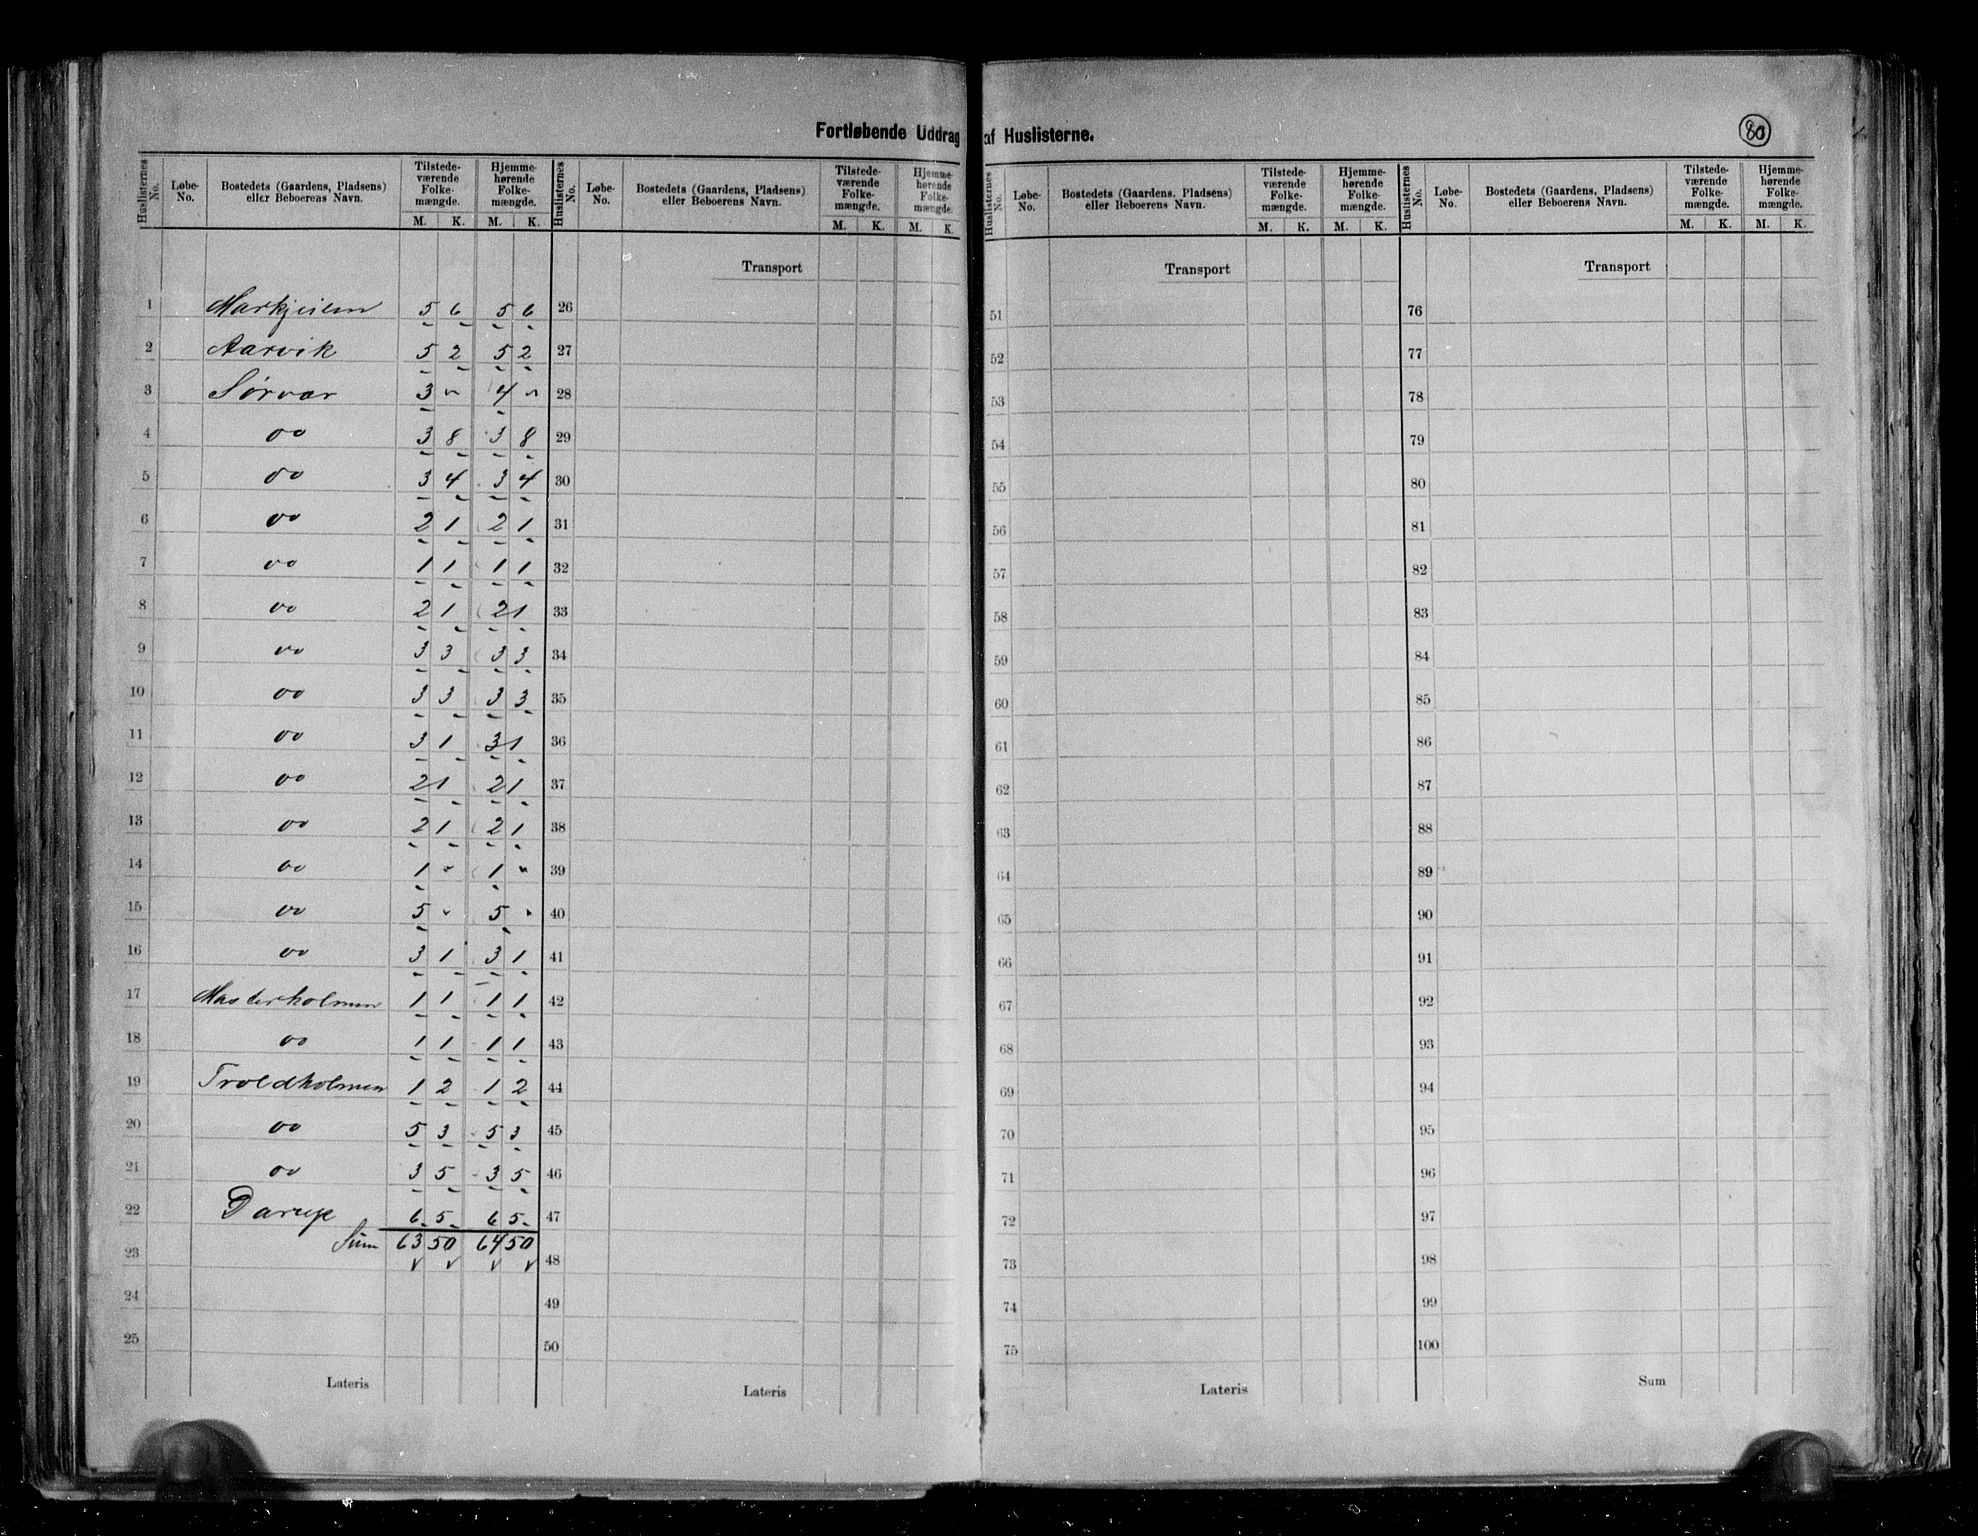 Fortløbende Uddrag af Huslisterne.
80
Huslisternes No. | Løbe-No. | Bostedets (Gaardens, Pladsens) eller Beboerens Navn. | Tilstedeværende Folkemængde. M. K. | Hjemmehørende Folkemængde. M. K.
1 5 6 5 6
2 Aarvik 5 2 5 2
3 Sørvær 3 " 4 "
4 oo 3 8 3 8
5 oo 3 4 3 4
6 oo 2 1 2 1
7 oo 1 1 1 1
8 oo 2 1 2 1
9 oo 3 3 3 3
10 oo 3 3 3 3
11 oo 3 1 3 1
12 oo 2 1 2 1
13 oo 2 1 2 1
14 oo 1 " 1 "
15 oo 5 " 5 "
16 oo 3 1 3 1
17 Masterholmen 1 1 1 1
18 oo 1 1 1 1
19 Troldholmen 1 2 1 2
20 oo 5 3 5 3
21 oo 3 5 3 5
22 6 5 6 5
23 Sum 63 50 64 50
24
25
Lateris
Huslisternes No. | Løbe-No. | Bostedets (Gaardens, Pladsens) eller Beboerens Navn. | Tilstedeværende Folkemængde. M. K. | Hjemmehørende Folkemængde. M. K.
Transport
26
27
28
29
30
31
32
33
34
35
36
37
38
39
40
41
42
43
44
45
46
47
48
49
50
Lateris
Huslisternes No. | Løbe-No. | Bostedets (Gaardens, Pladsens) eller Beboerens Navn. | Tilstedeværende Folkemængde. M. K. | Hjemmehørende Folkemængde. M. K.
Transport
51
52
53
54
55
56
57
58
59
60
61
62
63
64
65
66
67
68
69
70
71
72
73
74
75
Lateris
Huslisternes No. | Løbe-No. | Bostedets (Gaardens, Pladsens) eller Beboerens Navn. | Tilstedeværende Folkemængde. M. K. | Hjemmehørende Folkemængde. M. K.
Transport
76
77
78
79
80
81
82
83
84
85
86
87
88
89
90
91
92
93
94
95
96
97
98
99
100
Sum